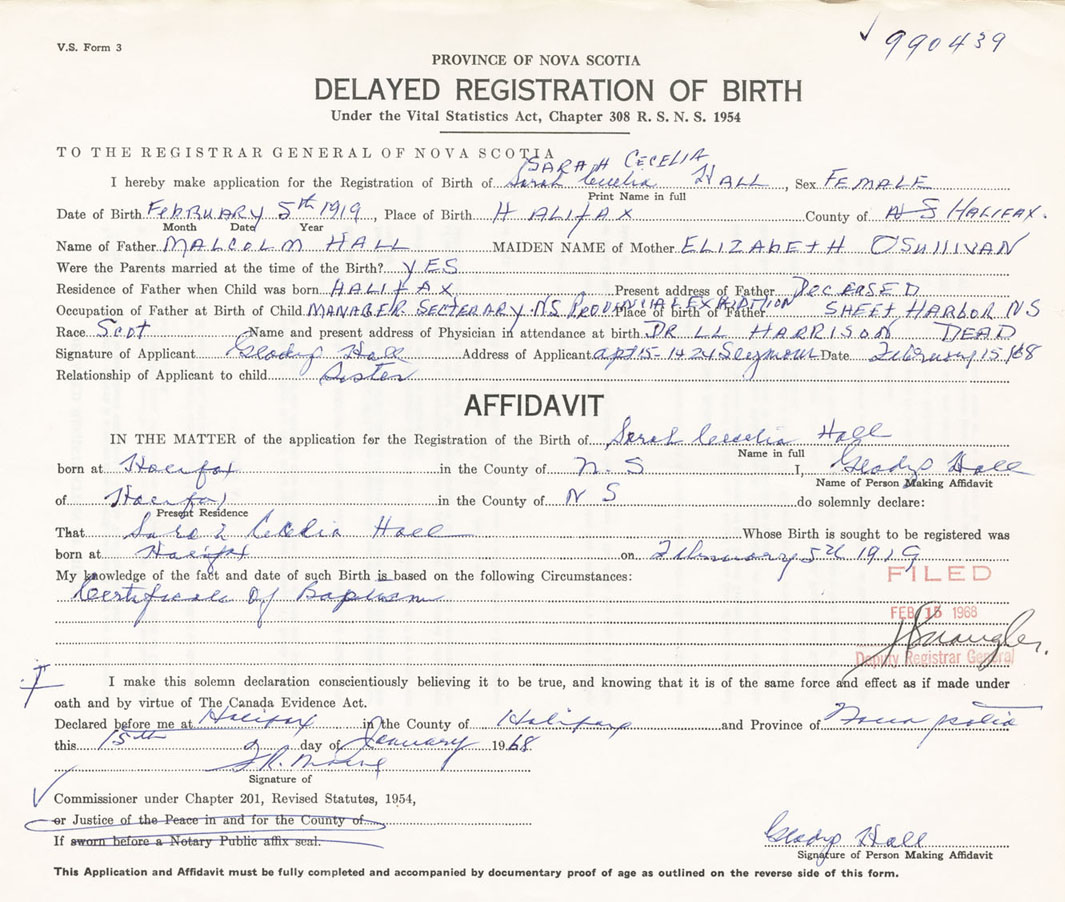 V.S. Form 3
✓ 990439
PROVINCE OF NOVA SCOTIA
DELAYED REGISTRATION OF BIRTH
Under the Vital Statistics Act, Chapter 308 R. S. N. S. 1954
TO THE REGISTRAR GENERAL OF NOVA SCOTIA
SARAH CECELIA
I hereby make application for the Registration of Birth of Sarah Cecelia HALL, Sex FEMALE
Print Name in full
Date of Birth FEBRUARY 5th 1919, Place of Birth HALIFAX County of N S HALIFAX.
Month Date Year
Name of Father MALCOLM HALL MAIDEN NAME of Mother ELIZABETH O'SULLIVAN
Were the Parents married at the time of the Birth? YES
Residence of Father when Child was born HALIFAX Present address of Father DECERSED
Occupation of Father at Birth of Child MANAGER SECTERARY NS PROVINCIAL EXHIBITION Place of birth of Father SHEET HARBOR NS
Race SCOT Name and present address of Physician in attendance at birth DR LL HARRISON DEAD
Signature of Applicant Gladys Hall Address of Applicant apt 15-1424 Seymour Date February 15/68
Relationship of Applicant to child Sister
AFFIDAVIT
IN THE MATTER of the application for the Registration of the Birth of Sarah Cecelia Hall
Name in full
born at Halifax in the County of N. S I, Gladys Hall
Name of Person Making Affidavit
of Halifax in the County of N S do solemnly declare:
Present Residence
That Sarah Cecelia Hall Whose Birth is sought to be registered was
born at Halifax on February 5th 1919
FILED
My knowledge of the fact and date of such Birth is based on the following Circumstances:
Certificate Of Baptism
FEB 15 1968
Deputy Registrar General
I make this solemn declaration conscientiously believing it to be true, and knowing that it is of the same force and effect as if made under
oath and by virtue of The Canada Evidence Act.
Declared before me at Halifax in the County of Halifax and Province of Nova Scotia
this 15th day of January 1968
Signature of
Commissioner under Chapter 201, Revised Statutes, 1954,
or Justice of the Peace in and for the County of
If sworn before a Notary Public affix seal.
Gladys Hall
Signature of Person Making Affidavit
This Application and Affidavit must be fully completed and accompanied by documentary proof of age as outlined on the reverse side of this form.